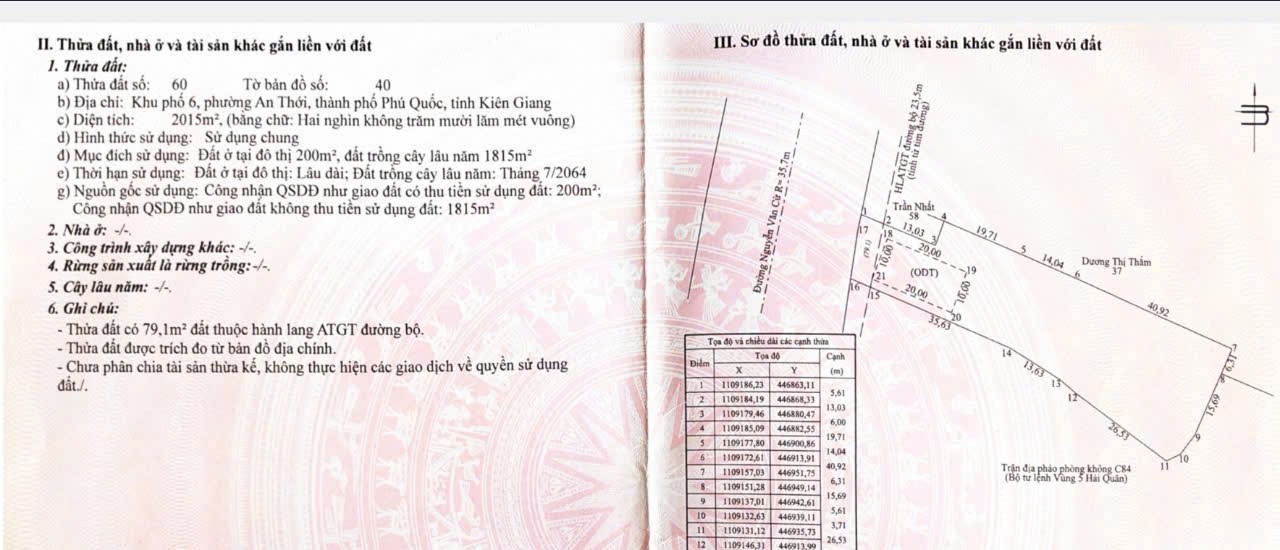 II. Thửa đất, nhà ở và tài sản khác gắn liền với đất
1. Thửa đất:
a) Thửa đất số: 60 Tờ bản đồ số: 40
b) Địa chỉ: Khu phố 6, phường An Thới, thành phố Phú Quốc, tỉnh Kiên Giang
c) Diện tích: 2015m², (bằng chữ: Hai nghìn không trăm mười lăm mét vuông)
d) Hình thức sử dụng: Sử dụng chung
đ) Mục đích sử dụng: Đất ở tại đô thị 200m², đất trồng cây lâu năm 1815m²
e) Thời hạn sử dụng: Đất ở tại đô thị: Lâu dài; Đất trồng cây lâu năm: Tháng 7/2064
g) Nguồn gốc sử dụng: Công nhận QSDĐ như giao đất có thu tiền sử dụng đất: 200m²;
Công nhận QSDĐ như giao đất không thu tiền sử dụng đất: 1815m²
2. Nhà ở: -/-.
3. Công trình xây dựng khác: -/-.
4. Rừng sản xuất là rừng trồng:-/-.
5. Cây lâu năm: -/-.
6. Ghi chú:
- Thửa đất có 79,1m² đất thuộc hành lang ATGT đường bộ.
- Thửa đất được trích đo từ bản đồ địa chính.
- Chưa phân chia tài sản thừa kế, không thực hiện các giao dịch về quyền sử dụng
đất./.
III. Sơ đồ thửa đất, nhà ở và tài sản khác gắn liền với đất
Đường Nguyễn Văn Cừ R= 35,7m
HLATGT đường bộ 23,5m
(tính từ tim đường)
Trần Nhất
58
1
2
13,03
3
4
19,71
5
14,04
6
Dương Thị Thắm
37
40,92
7
6,31
8
15,69
9
10
11
26,53
12
13
13,63
14
35,63
15
16
17
18
20,00
19
10,00
(ODT)
10,00
20
20,00
21
(79,1)
Trận địa pháo phòng không C84
(Bộ tư lệnh Vùng 5 Hải Quân)
Tọa độ và chiều dài các cạnh thửa
Điểm Tọa độ Cạnh
X Y (m)
1 1109186,23 446863,11
5,61
2 1109184,19 446868,33
13,03
3 1109179,46 446880,47
6,00
4 1109185,09 446882,55
19,71
5 1109177,80 446900,86
14,04
6 1109172,61 446913,91
40,92
7 1109157,03 446951,75
6,31
8 1109151,28 446949,14
15,69
9 1109137,01 446942,61
5,61
10 1109132,63 446939,11
3,71
11 1109131,12 446935,73
26,53
12 1109146,31 446913,99